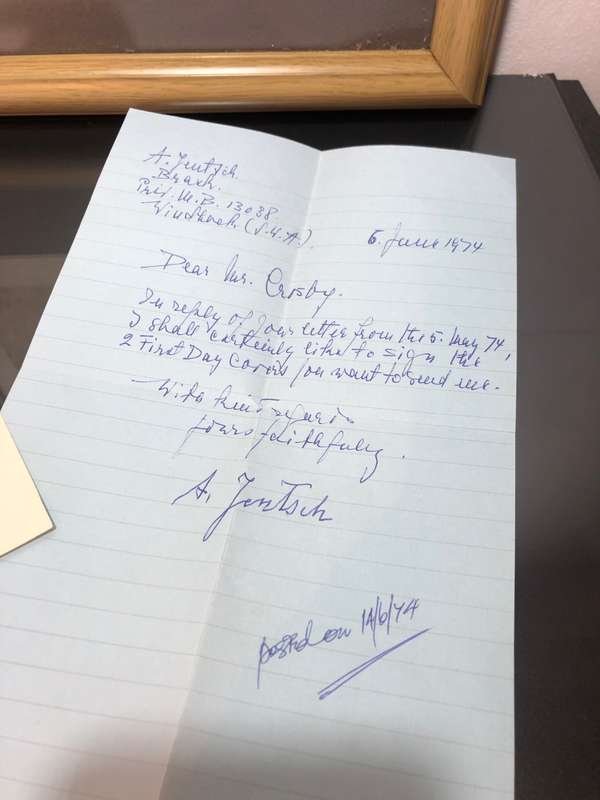 A. Jentsch
Brack.
Priv. M. B. 13038
Windhoek (S.W.A.)
6. June 1974
Dear Mr. Crosby.
In reply of your letter from the 5. May 74,
I shall certainly like to sign the
2 First Day Covers you want to send me.
With kind regards
yours faithfully.
A. Jentsch
posted on 14/6/74